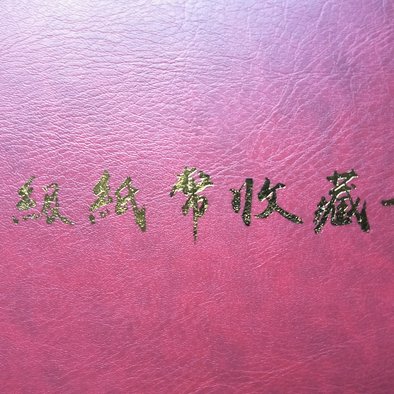 銀紙幣收藏